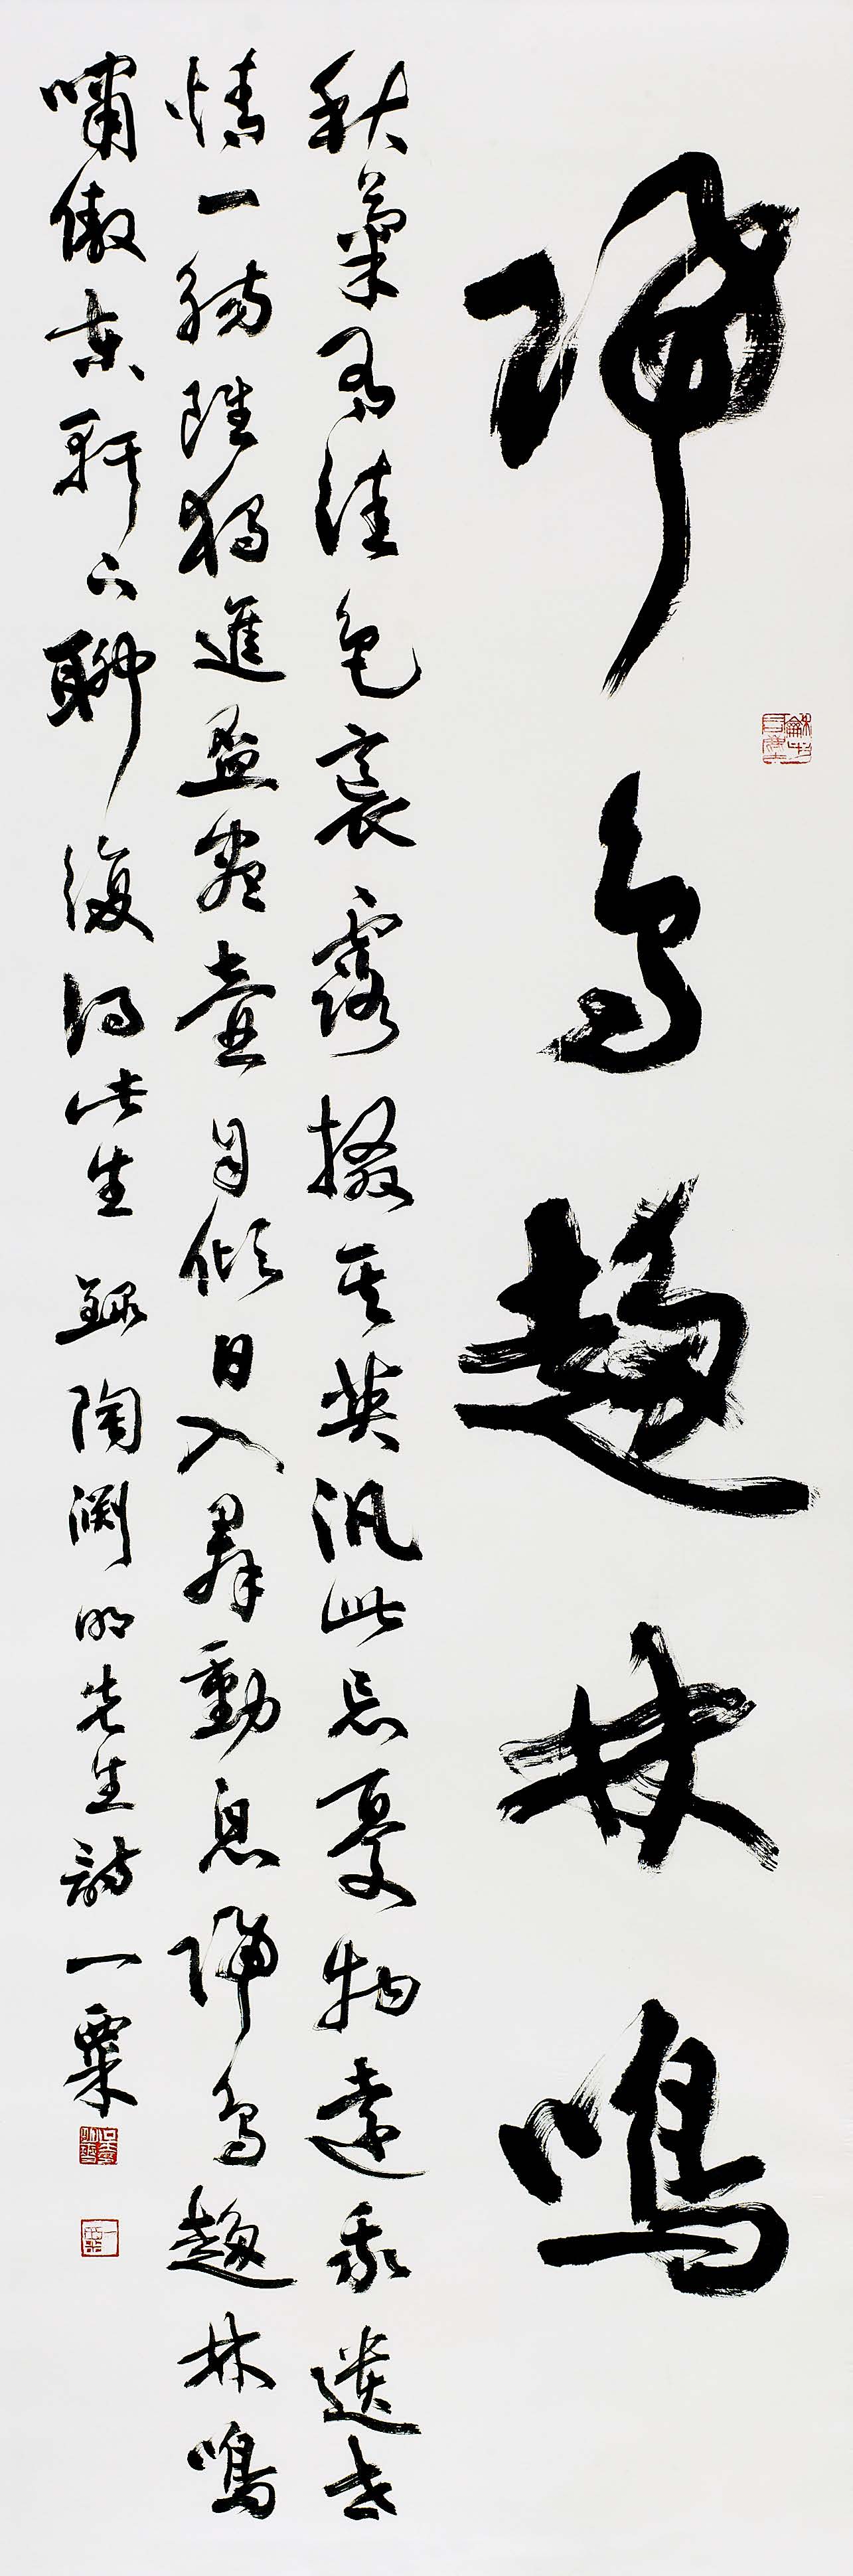 歸鳥趨林鳴
秋菊有佳色裛露掇其英汎此忘憂物遠我遺世
情一觴雖獨進盃盡壺自傾日入羣動息歸鳥趨林鳴
嘯傲東軒下聊復得此生 錄陶淵明先生詩一粟
一粟